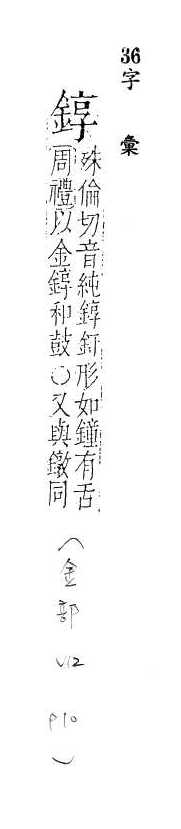 36字彙
錞
殊倫切音純錞釪形如鐘有舌
周禮以金錞和鼓○又與鐓同
(金部 V12 P10)